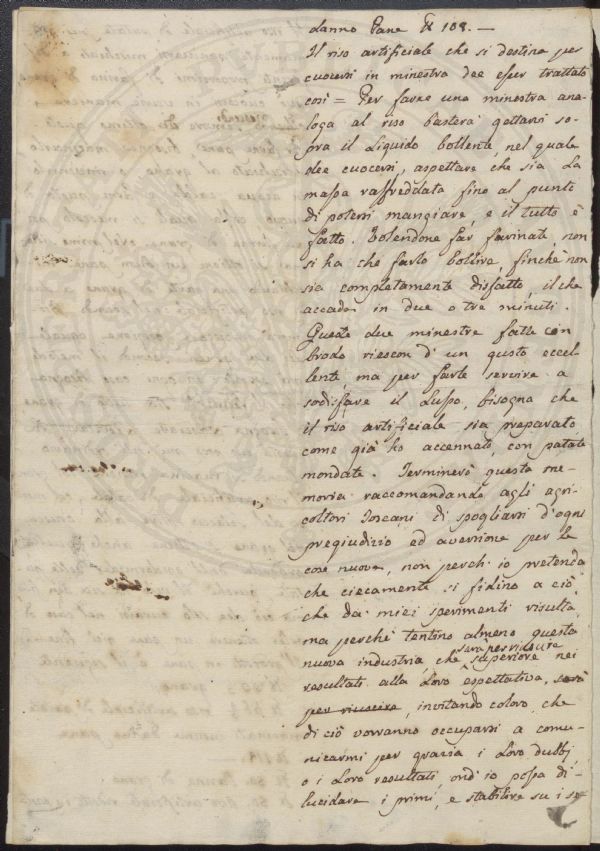 danno Pane ℔ 108. —
Il riso artificiale che si destina per
cuocersi in minestra dee esser trattato
così = Per fare una minestra ana-
loga al riso basterà gettarsi so-
pra il Liquido bollente, nel quale
dee cuocersi, aspettare che sia La
massa raffreddata fino al punto
di potersi mangiare, e il tutto è
fatto. Volendone far farinate, non
si ha che farlo bollire, finchè non
sia completamente disfatto, il che
accade in due o tre minuti.
Queste due minestre fatte con
brodo riescon d'un gusto eccel-
lente, ma per farle servire a
sodisfare il Lusso, bisogna che
il riso artificiale sia preparato
come già ho accennato, con patate
mondate. Terminerò questa me-
moria raccomandando agli agri-
coltori Toscani di spogliarsi d'ogni
pregiudizio ed avversione per le
cose nuove, non perchè io pretenda
che ciecamente si fidino a ciò
che da miei sperimenti risulta,
ma perchè tentino almeno questa
nuova industria, che sarà per riuscire superiore nei
resultati alla Loro espettativa, sarà
per riuscire, invitando coloro, che
di ciò vorranno occuparsi a comu-
nicarmi per grazia i Loro dubbj
o i Loro resultati ond'io possa di-
lucidare i primi, e stabilire su i se-